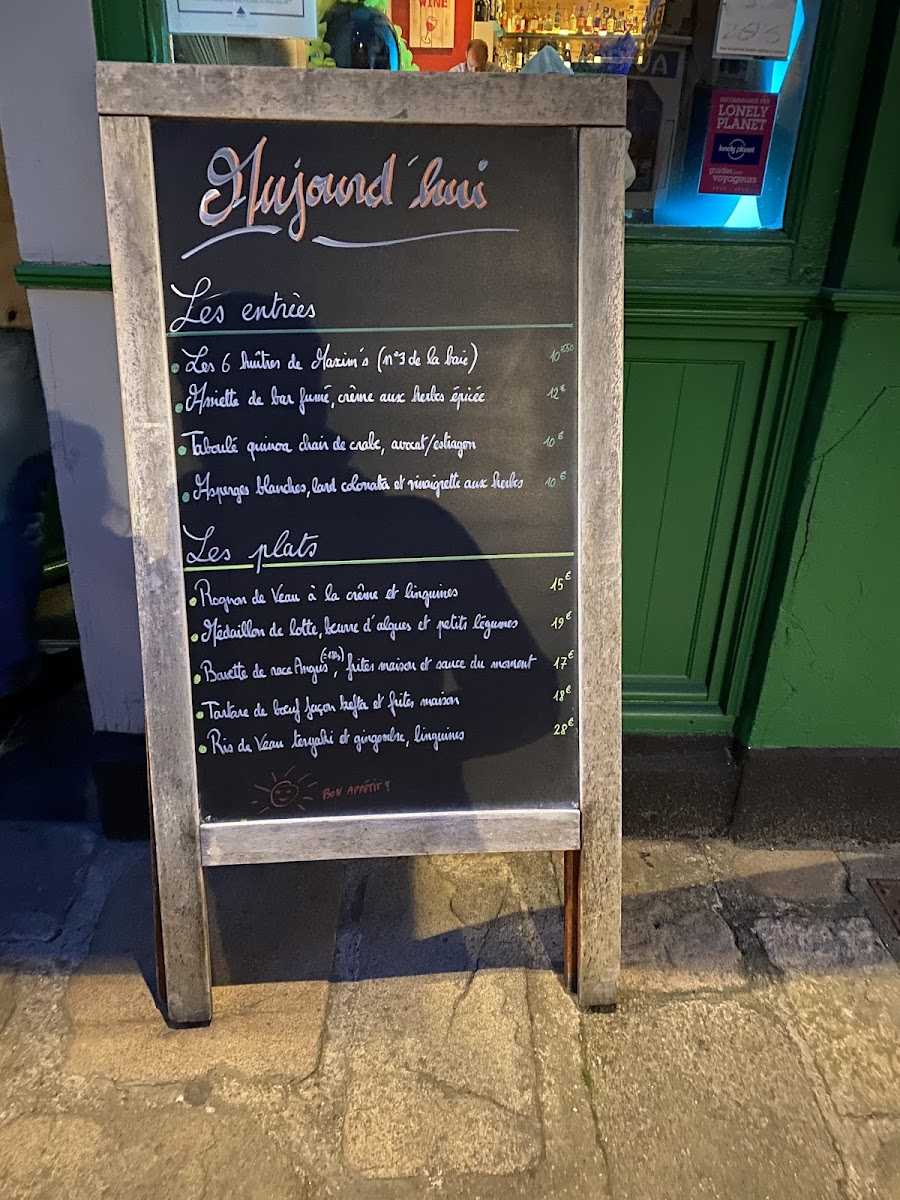 WINE
RECOMMANDÉ PAR
LONELY
PLANET
lonely planet
guides
voyageurs
Aujourd'hui
Les entrées
Les 6 huîtres de Maxim's (n°3 de la baie) 10€50
Assiette de bar fumé, crème aux herbes épicée 12€
Taboulé quinoa chair de crabe, avocat/estragon 10€
Asperges blanches, lard colonata et vinaigrette aux herbes 10€
Les plats
Rognon de Veau à la crème et linguines 15€
Médaillon de lotte, beurre d'algues et petits légumes 19€
Bavette de race Angus, frites maison et sauce du moment 17€
Tartare de bœuf façon kefta et frites maison 18€
Ris de Veau teryaki et gingembre, linguines 28€
BON APPÉTIT!